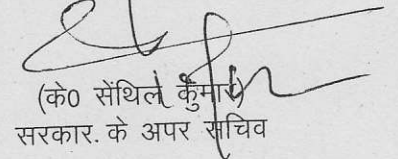 (के० सेंथिल कुमार)
सरकार. के अपर सचिव